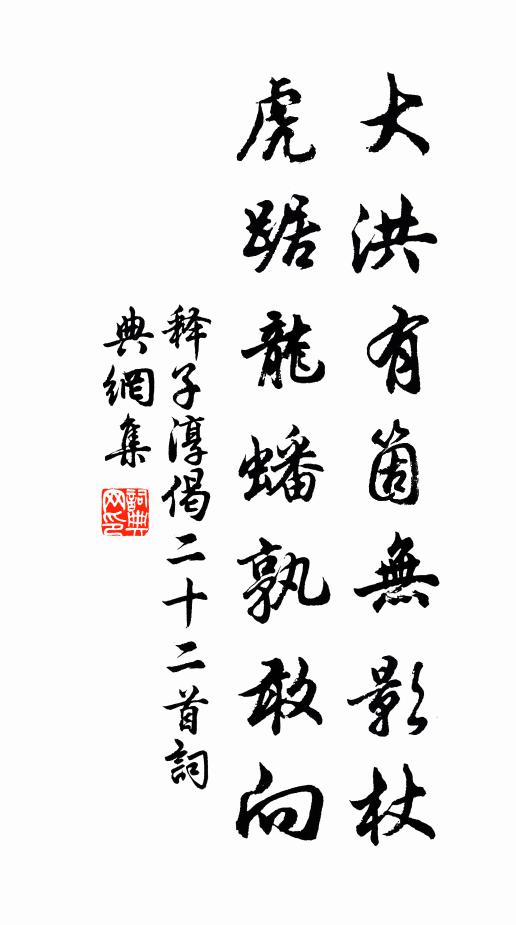 大洪有箇無影杖
虎踞龍蟠孰敢向
释子淳偈二十二首詞
典網集
詞典网印